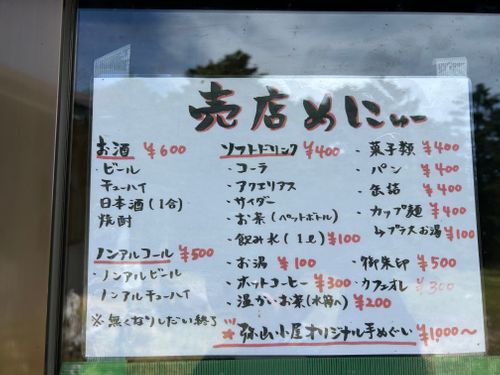 売店めにゅー
お酒 ¥600
・ビール
チューハイ
日本酒(1合)
焼酎
ノンアルコール ¥500
・ノンアルビール
ノンアルチューハイ
※無くなりしだい終了
ソフトドリンク ¥400
・コーラ
・アクエリアス
・サイダー
・お茶(ペットボトル)
・飲み水(1ℓ) ¥100
・お湯 ¥100
・ホットコーヒー ¥300
・温かいお茶(水筒へ) ¥200
・菓子類 ¥400
・パン ¥400
・缶詰 ¥400
・カップ麺 ¥400
↳プラスお湯 ¥100
・御朱印 ¥500
・カフェオレ ¥300
※弥山小屋オリジナル手ぬぐい ¥1,000〜